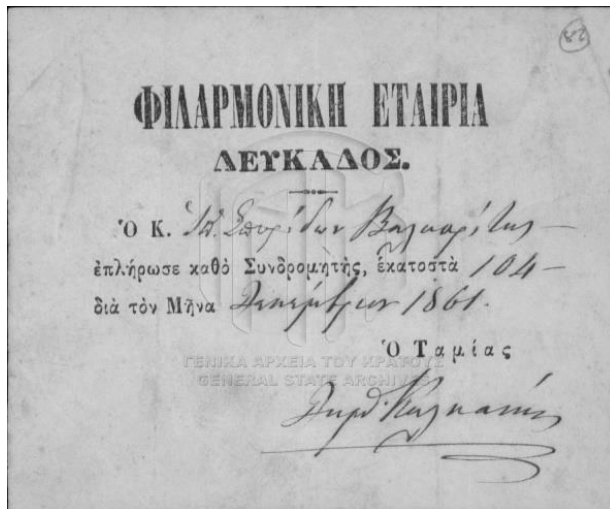 82
ΦΙΛΑΡΜΟΝΙΚΗ ΕΤΑΙΡΙΑ
ΛΕΥΚΑΔΟΣ.
Ὁ Κ. Ἱπ. Σπυρίδων Βαλαωρίτης
ἐπλήρωσε καθὸ Συνδρομητὴς, ἑκατοστὰ 104
διὰ τὸν Μῆνα Δεκέμβριον 1861.
Ὁ Ταμίας
ΓΕΝΙΚΑ ΑΡΧΕΙΑ ΤΟΥ ΚΡΑΤΟΥΣ
GENERAL STATE ARCHIVES